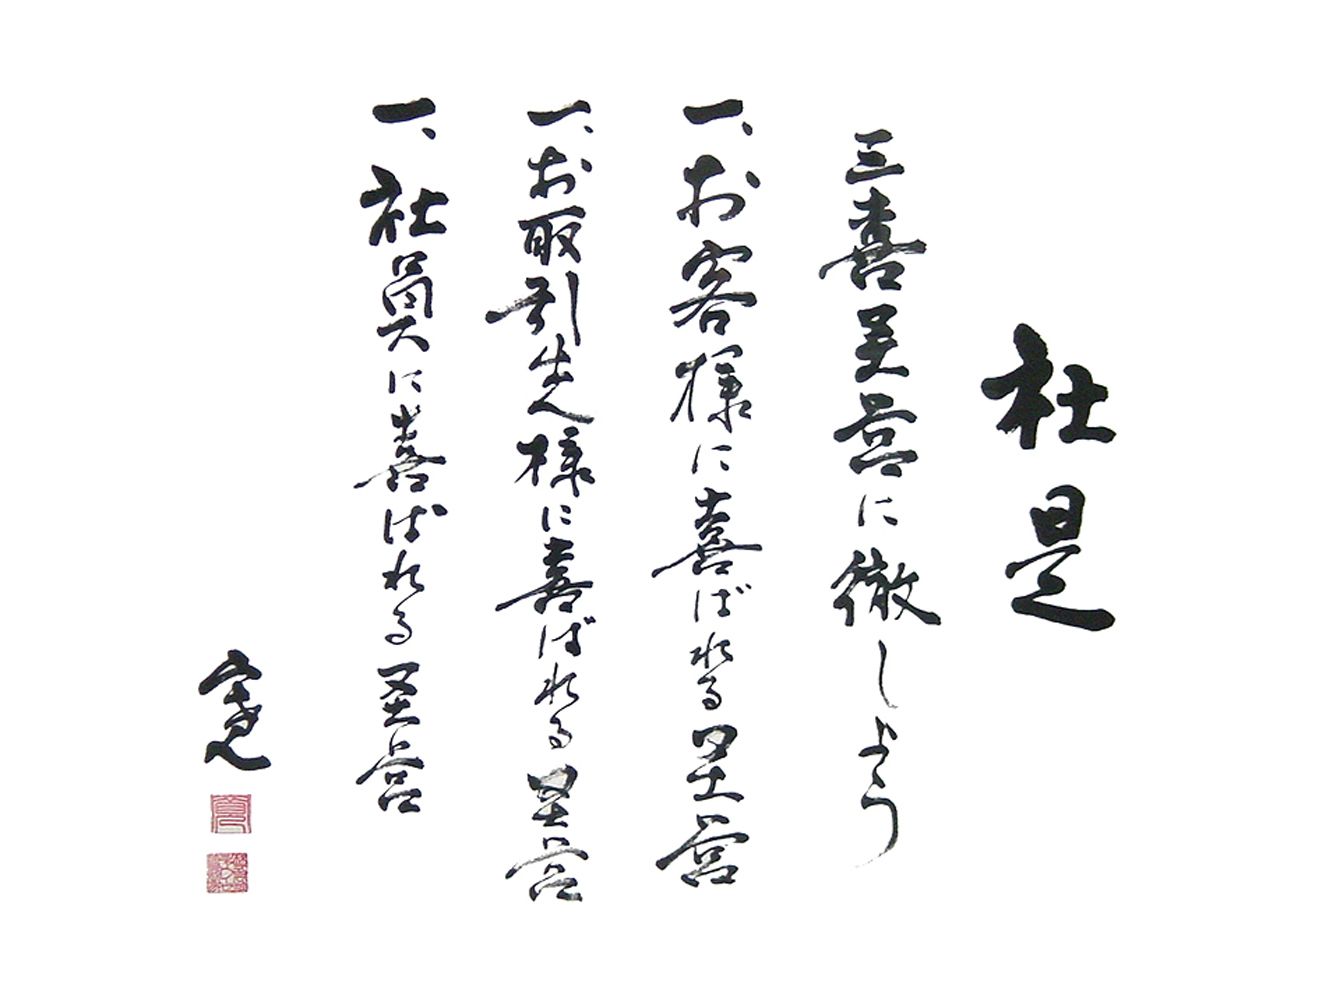 社是
三喜主義に徹しよう
一、お客様に喜ばれる経営
一、お取引先様に喜ばれる経営
一、社員に喜ばれる経営